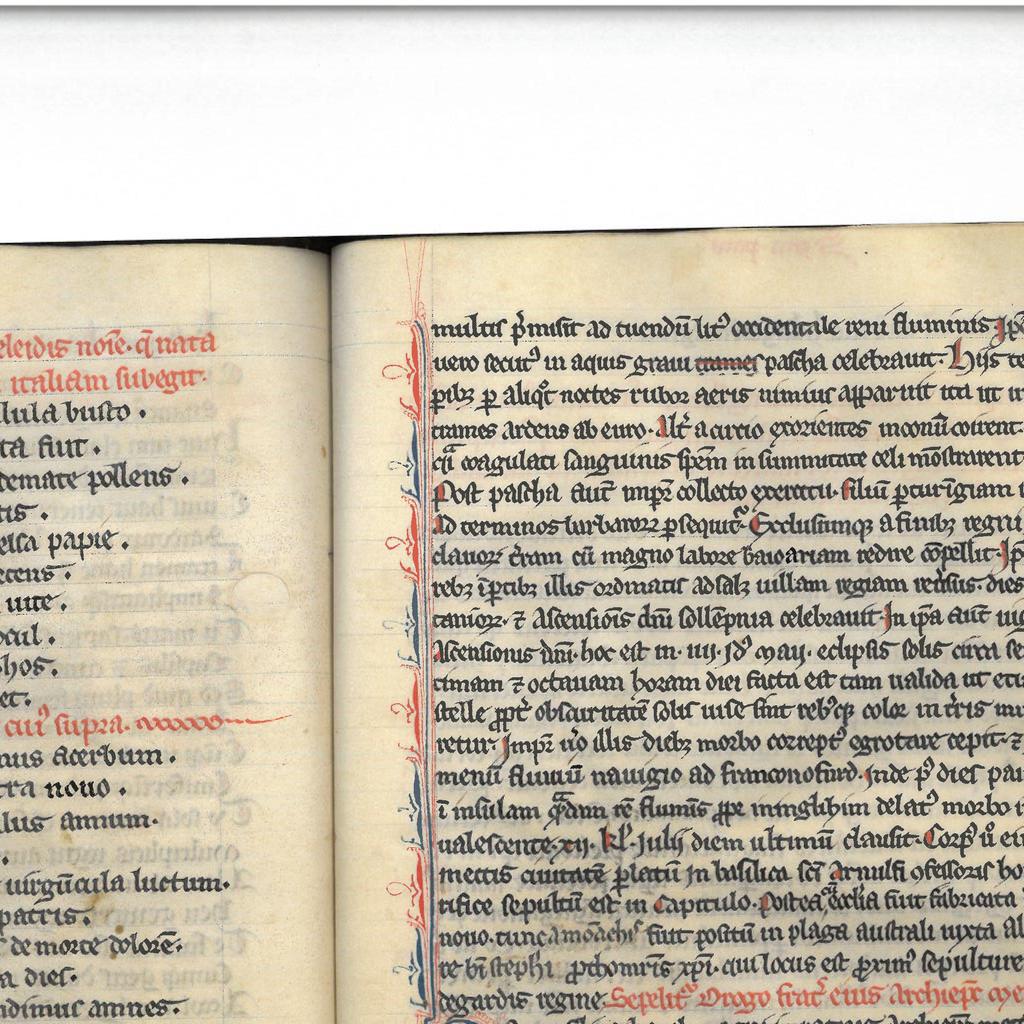 eleidis noīe. q̄ nata
italiam subegit.
lula busto .
ta fuit .
demate pollens .
tis .
elsa papie .
tecens .
uite .
ocul .
phos .
et .
cui᷒ supra .
nus acerbum .
tra nouo .
lus annum .
uirgūcula luctum .
patris .
de morte dolorē .
a dies .
ndimus amnes .
multis p̄misit ad tuendū lit᷒ occidentale reni fluminis Ipē
uero secut᷒ in aquis graui pascha celebrauit. Hijs te
ꝑibꝫ ꝑ aliqͦt noctes rubor aeris nimius apparuit ita ut
trames ardens ab euro. Alt̄ a circio exorientes in conū coirent.
coagulati sanguinis spēm in summitate celi mōstrarent
Post pascha aut̄ impr̄ collecto exercitu. filiū ꝑ turīgiam
Ad terminos barbaroꝝ ꝑsequit᷒. Exclusumqꝫ a finibꝫ regni
clauoꝝ t̄ram cū magno labore baioariam redire cōpellit. Ip̄
rebꝫ ī ꝑtibꝫ illis ordinatis ad salꝫ uillam regiam reuersus. dies
tanioꝝ. ⁊ Ascensiōis dn̄i sollēpnia celebrauit. In ip̄a aut̄ uig
Ascensionis dn̄i. hoc est in. iiij. Idᷤ maij. eclipsis solis circa se
timam ⁊ octauam horam diei facta est tam ualida ut eti
stelle ꝓpt̄ obscuritatē solis uise sint reb᷒qꝫ color in t̄ris
retur. Impr̄ u̇o illis diebꝫ morbo corrept᷒ egrotare cepit. ⁊
menū fluuiū nauigio ad franconofurd. inde pͦ dies pau
ī insulam qͣdam rē flumīs ꝓpe ininglihim delat᷒ morbo
ualescente. xij. kl̄. Julij diem ultimū clausit. Corp᷒ u̇ ei
mettis ciuitatē ꝑlatū in basilica scī Arnulfi ꝯfessoris ho
rifice sepultū est in Capitulo. Postea eccl̄ia fuit fabricata
nouo. tunc a mōachis fuit positū in plaga australi iuxta al
re bī stephi ꝓthomr̄is xp̄i. qui locus est ꝓxim᷒ sepulture
degardis regine. Sepelit᷒ Drogo frat̄ eius Archiep̄c